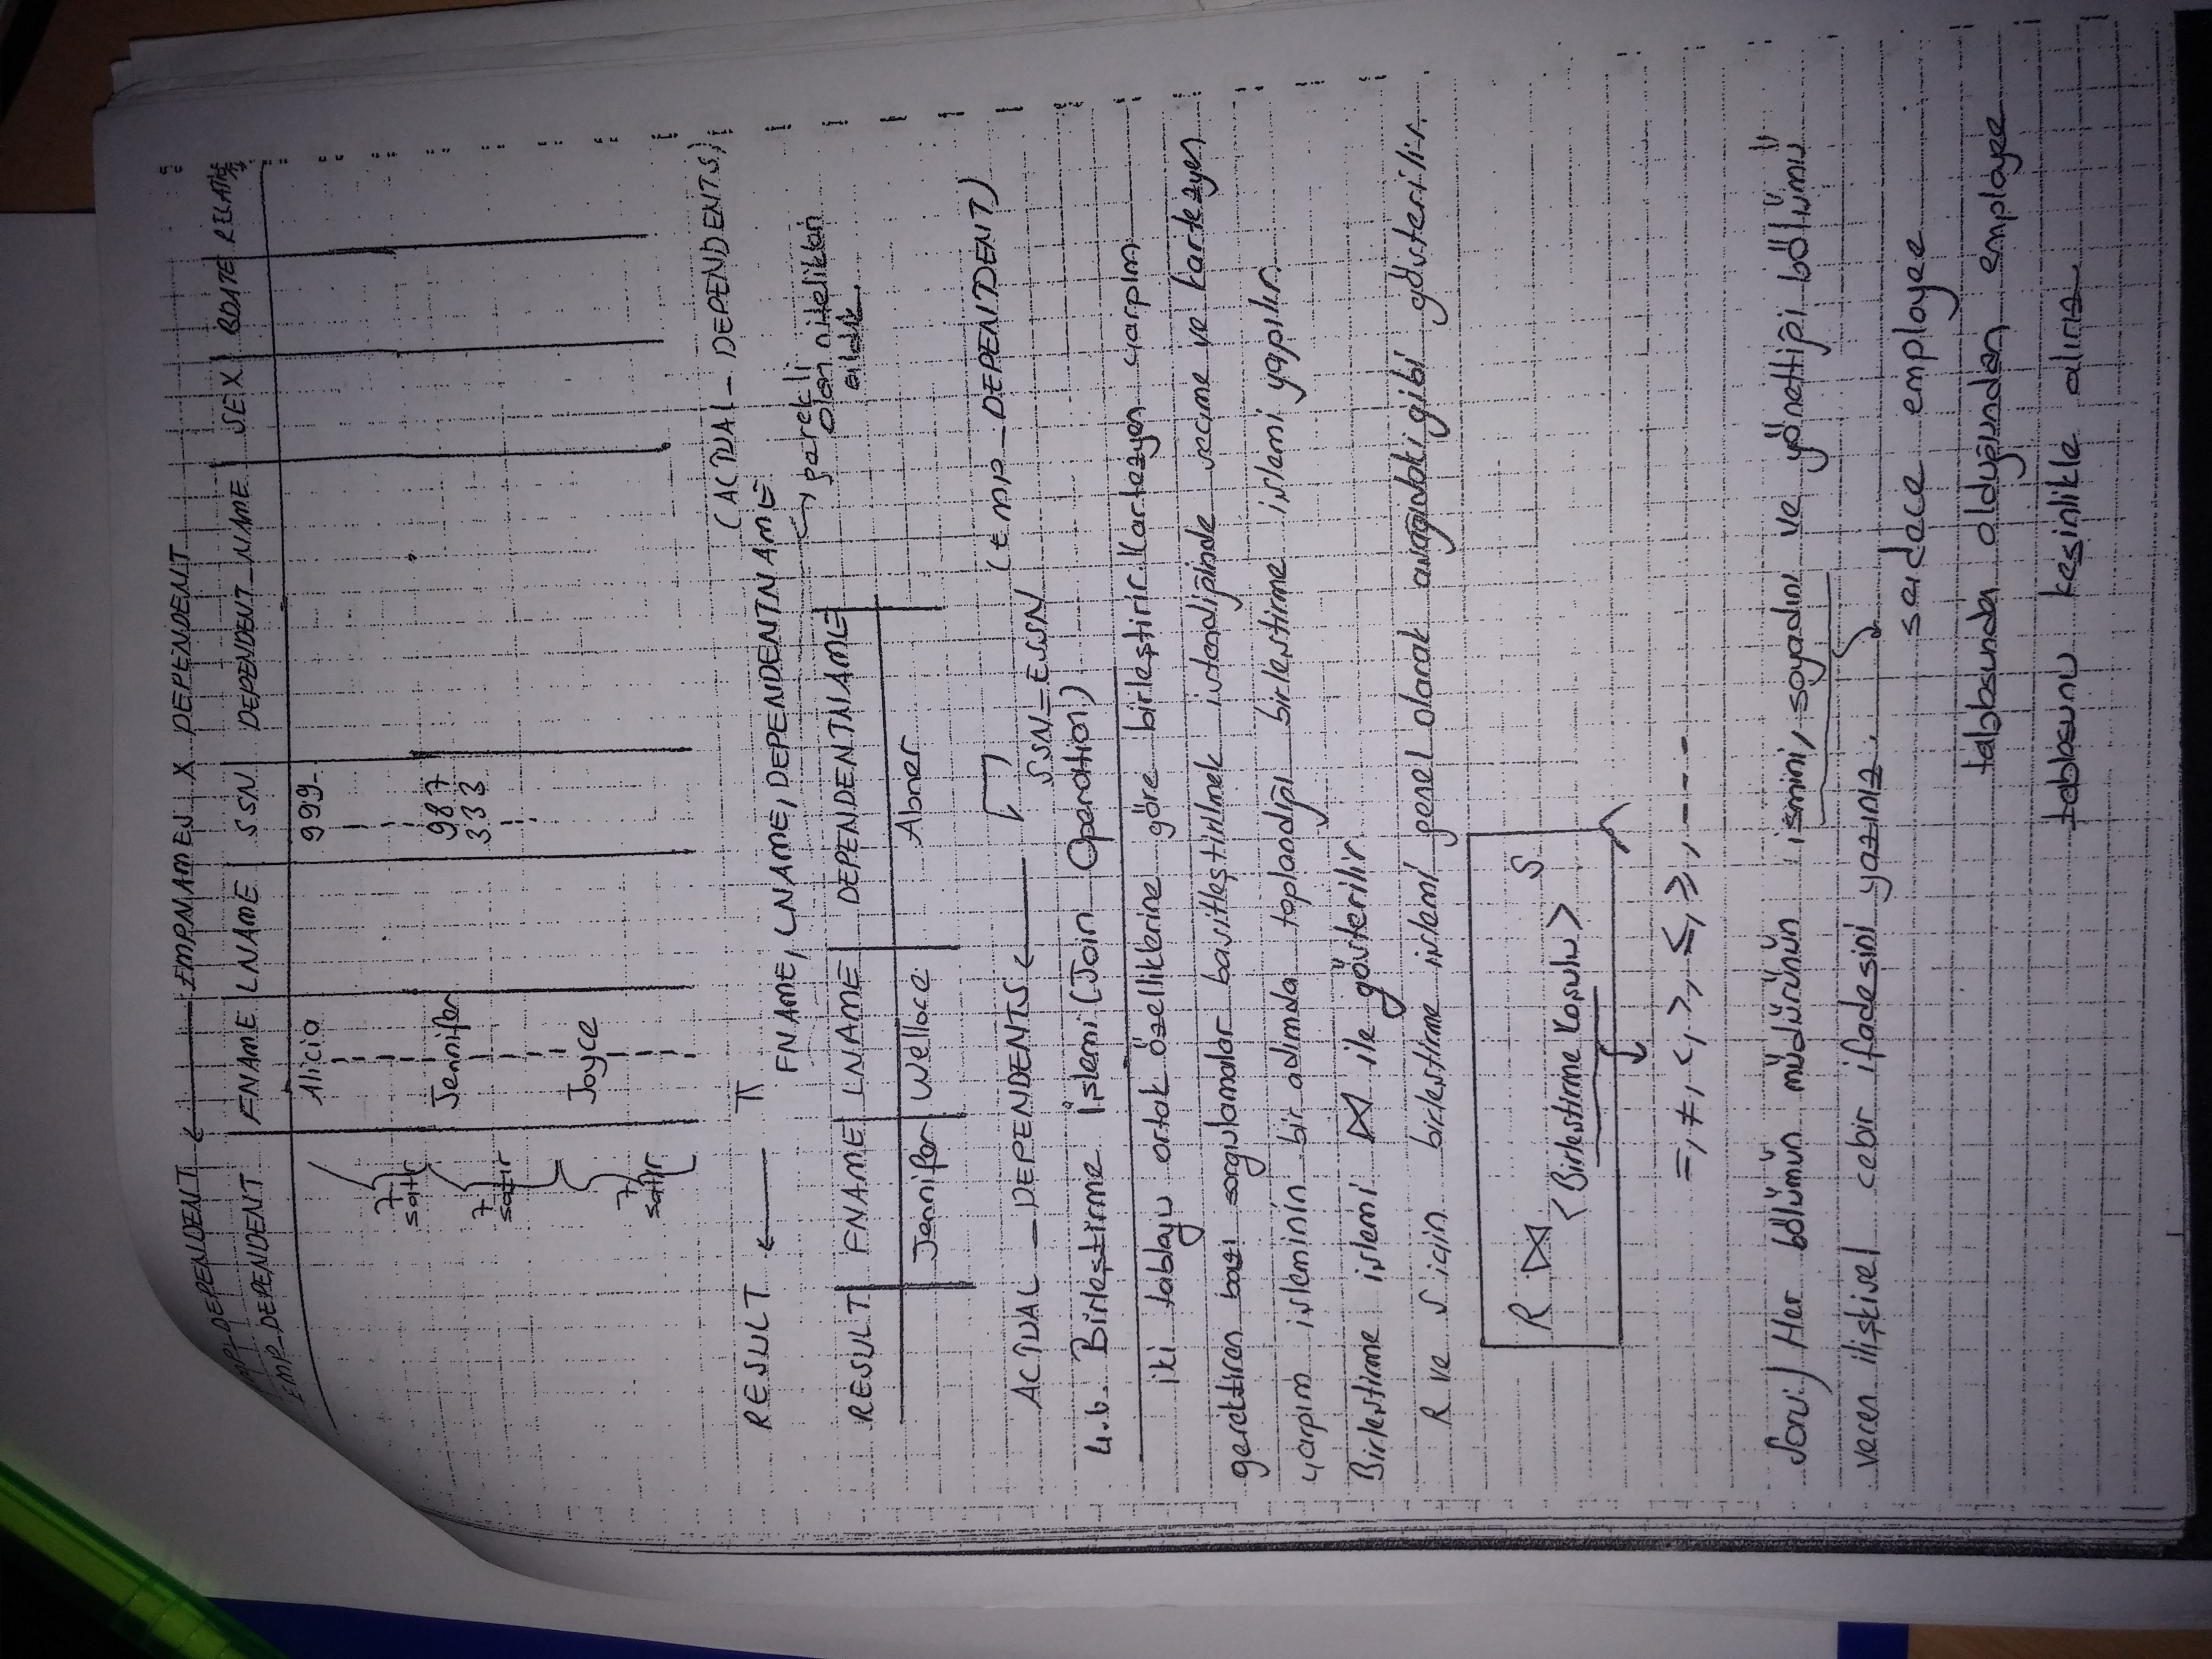 EMP_DEPENDENT ← EMPNAMES X DEPENDENT
EMP_DEPENDENT | FNAME | LNAME | SSN | DEPENDENT_NAME | SEX | BDATE
Alicia 999-
7 satır
Jennifer 987
333
7 satır
Joyce
7 satır
RESULT ← π FNAME, LNAME, DEPENDENTNAME (ACTUAL_DEPENDENTS)
↪ gerekli
olan nitelikleri
aldık.
RESULT | FNAME | LNAME | DEPENDENTNAME
Jennifer | Wellace | Abner
ACTUAL_DEPENDENTS ← SSN=ESSN (EMP_DEPENDENT)
4.6. Birleştirme İşlemi (Join Operation)
iki tabloyu ortak özelliklerine göre birleştirir. Kartezyen çarpım
gerektiren bazı sorgulamalar basitleştirilmek istendiğinde seçme ve kartezyen
çarpım işleminin bir adımda toplandığı birleştirme işlemi yapılır.
Birleştirme işlemi ⋈ ile gösterilir.
R ve S için birleştirme işlemi genel olarak aşağıdaki gibi gösterilir.
R ⋈ S
<Birleştirme Koşulu>
=, ≠, <, >, ≤, ≥, - - -
Soru:) Her bölümün müdürünün ismini, soyadını ve yönettiği bölümü
veren ilişkisel cebir ifadesini yazınız.
sadece employee
tablosunda olduğundan employee
tablosunu kesinlikle alırız.